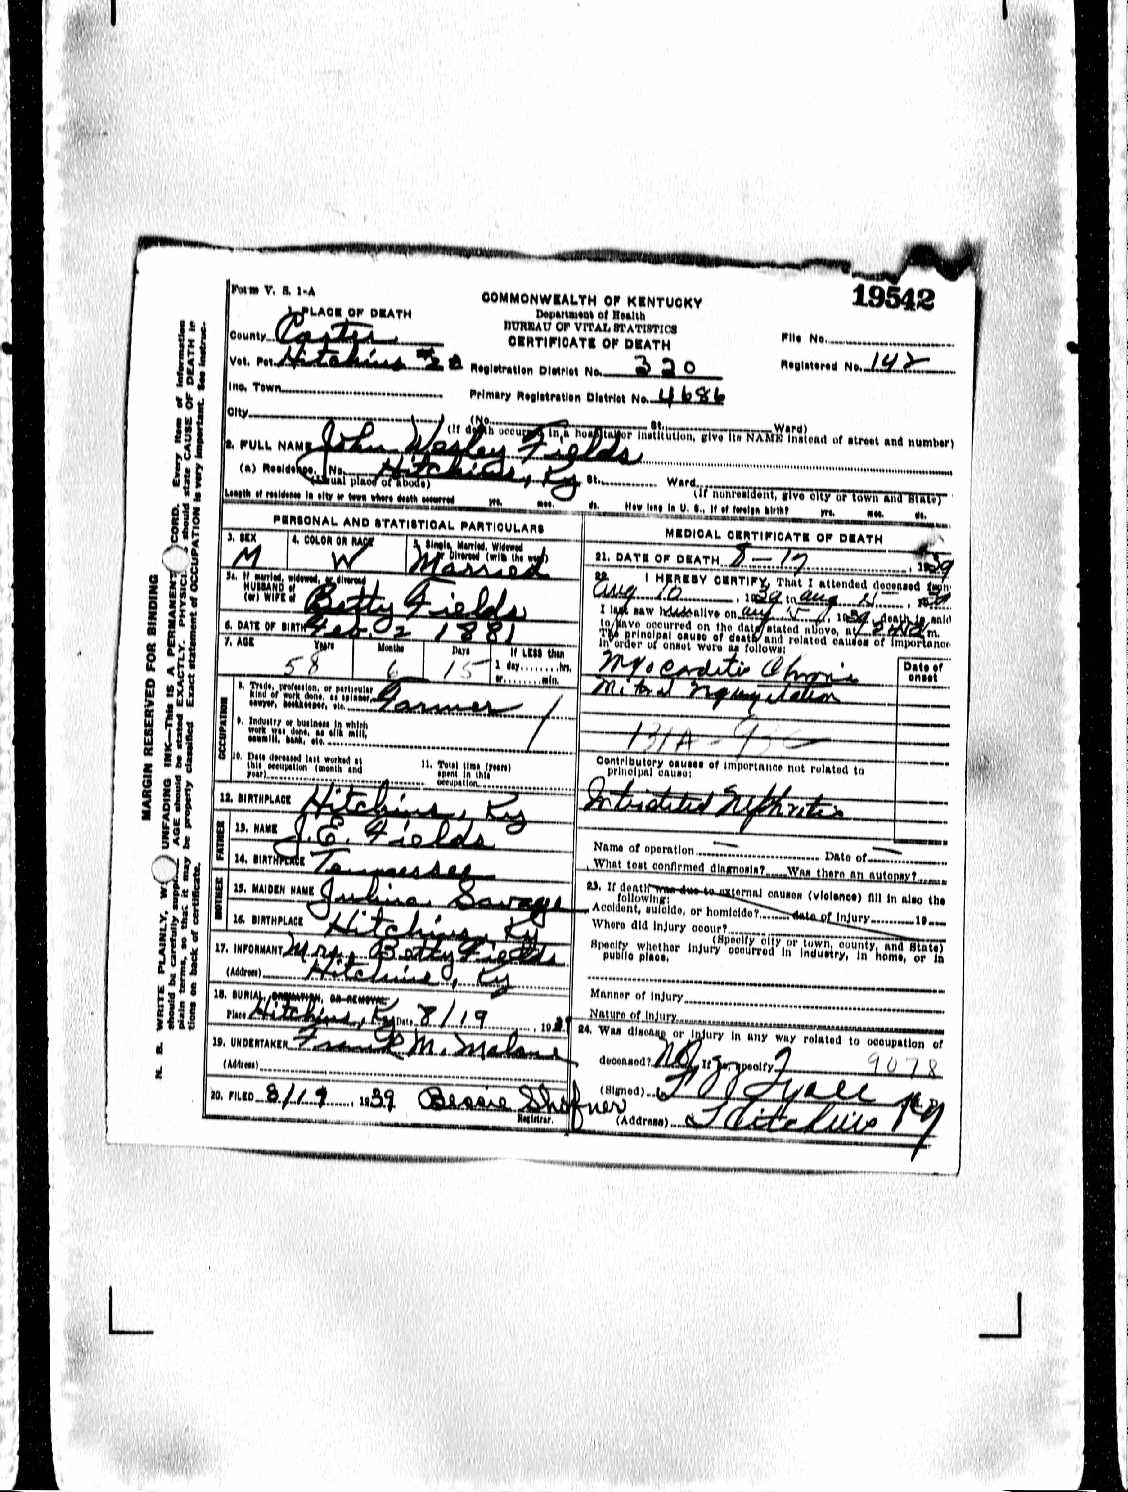 Form V. S. 1-A
19542
COMMONWEALTH OF KENTUCKY
Department of Health
BUREAU OF VITAL STATISTICS
CERTIFICATE OF DEATH
1. PLACE OF DEATH
County Carter
Vot. Pct. Hitchins #28
Inc. Town
City
Registration District No. 320
Primary Registration District No. 4686
File No.
Registered No. 142
(No. St. Ward)
(If death occurred in a hospital or institution, give its NAME instead of street and number)
2. FULL NAME John Wesley Fields
(a) Residence. No. Hitchins, Ky St. Ward
(Usual place of abode) (If nonresident, give city or town and State)
Length of residence in city or town where death occurred yrs. mos. ds. How long in U. S., if of foreign birth? yrs. mos. ds.
PERSONAL AND STATISTICAL PARTICULARS
3. SEX M
4. COLOR OR RACE W
5. Single, Married, Widowed or Divorced (write the word) Married
5a. If married, widowed, or divorced
HUSBAND of
(or) WIFE of Betty Fields
6. DATE OF BIRTH Feb. 2 1881
7. AGE Years 58 Months 6 Days 15 If LESS than 1 day hrs. or min.
OCCUPATION
8. Trade, profession, or particular kind of work done, as spinner, sawyer, bookkeeper, etc. Farmer
9. Industry or business in which work was done, as silk mill, sawmill, bank, etc.
10. Date deceased last worked at this occupation (month and year)
11. Total time (years) spent in this occupation
12. BIRTHPLACE Hitchins, Ky
FATHER
13. NAME J.E. Fields
14. BIRTHPLACE Tennessee
MOTHER
15. MAIDEN NAME Savage
16. BIRTHPLACE Hitchins, Ky
17. INFORMANT Mrs. Betty Fields
(Address) Hitchins, Ky
18. BURIAL, CREMATION, OR REMOVAL
Place Hitchins, Ky Date 8/19, 1939
19. UNDERTAKER Frank M. Malone
(Address)
20. FILED 8/19, 1939 Bessie Shofner
Registrar.
MEDICAL CERTIFICATE OF DEATH
21. DATE OF DEATH 8-17, 1939
22. I HEREBY CERTIFY, That I attended deceased from
Aug 10, 1939 to Aug, 1939
I last saw him alive on Aug, 1939, death is said
to have occurred on the date stated above, at m.
The principal cause of death and related causes of importance
in order of onset were as follows:
Date of onset
Myocarditis Chronic
Mitral Regurgitation
131A-93C
Contributory causes of importance not related to
principal cause:
Nephritis
Name of operation Date of
What test confirmed diagnosis? Was there an autopsy?
23. If death was due to external causes (violence) fill in also the
following:
Accident, suicide, or homicide? date of injury 19
Where did injury occur?
(Specify city or town, county, and State)
Specify whether injury occurred in industry, in home, or in
public place.
Manner of injury
Nature of injury
24. Was disease or injury in any way related to occupation of
deceased? No If so, specify
9078
(Signed)
(Address) Hitchins Ky
MARGIN RESERVED FOR BINDING
N. B. WRITE PLAINLY, UNFADING INK—This IS A PERMANENT CORD. Every item of information
should be carefully AGE should be stated EXACTLY. should state CAUSE OF DEATH in
plain terms, so that it may be properly classified Exact statement of OCCUPATION is very important. See instruc-
tions on back of certificate.